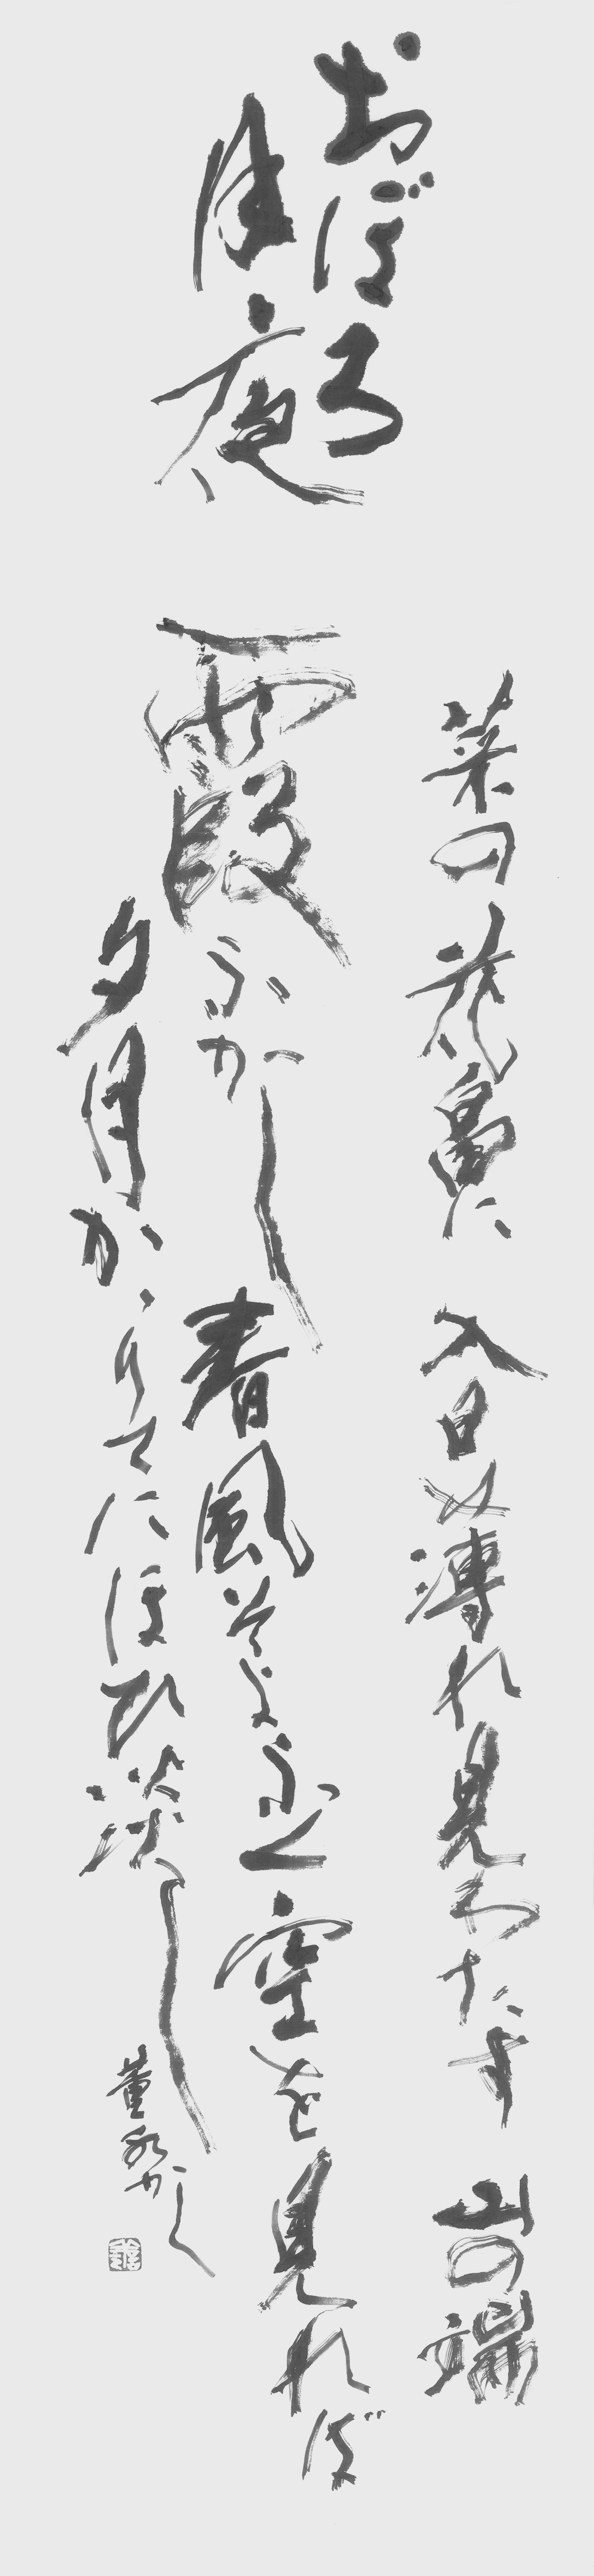 おぼろ
月夜
菜の花畠に 入日薄れ 見わたす 山の端
霞ふかし 春風そよふく 空を見れば
夕月かゝりて にほひ淡し
かく